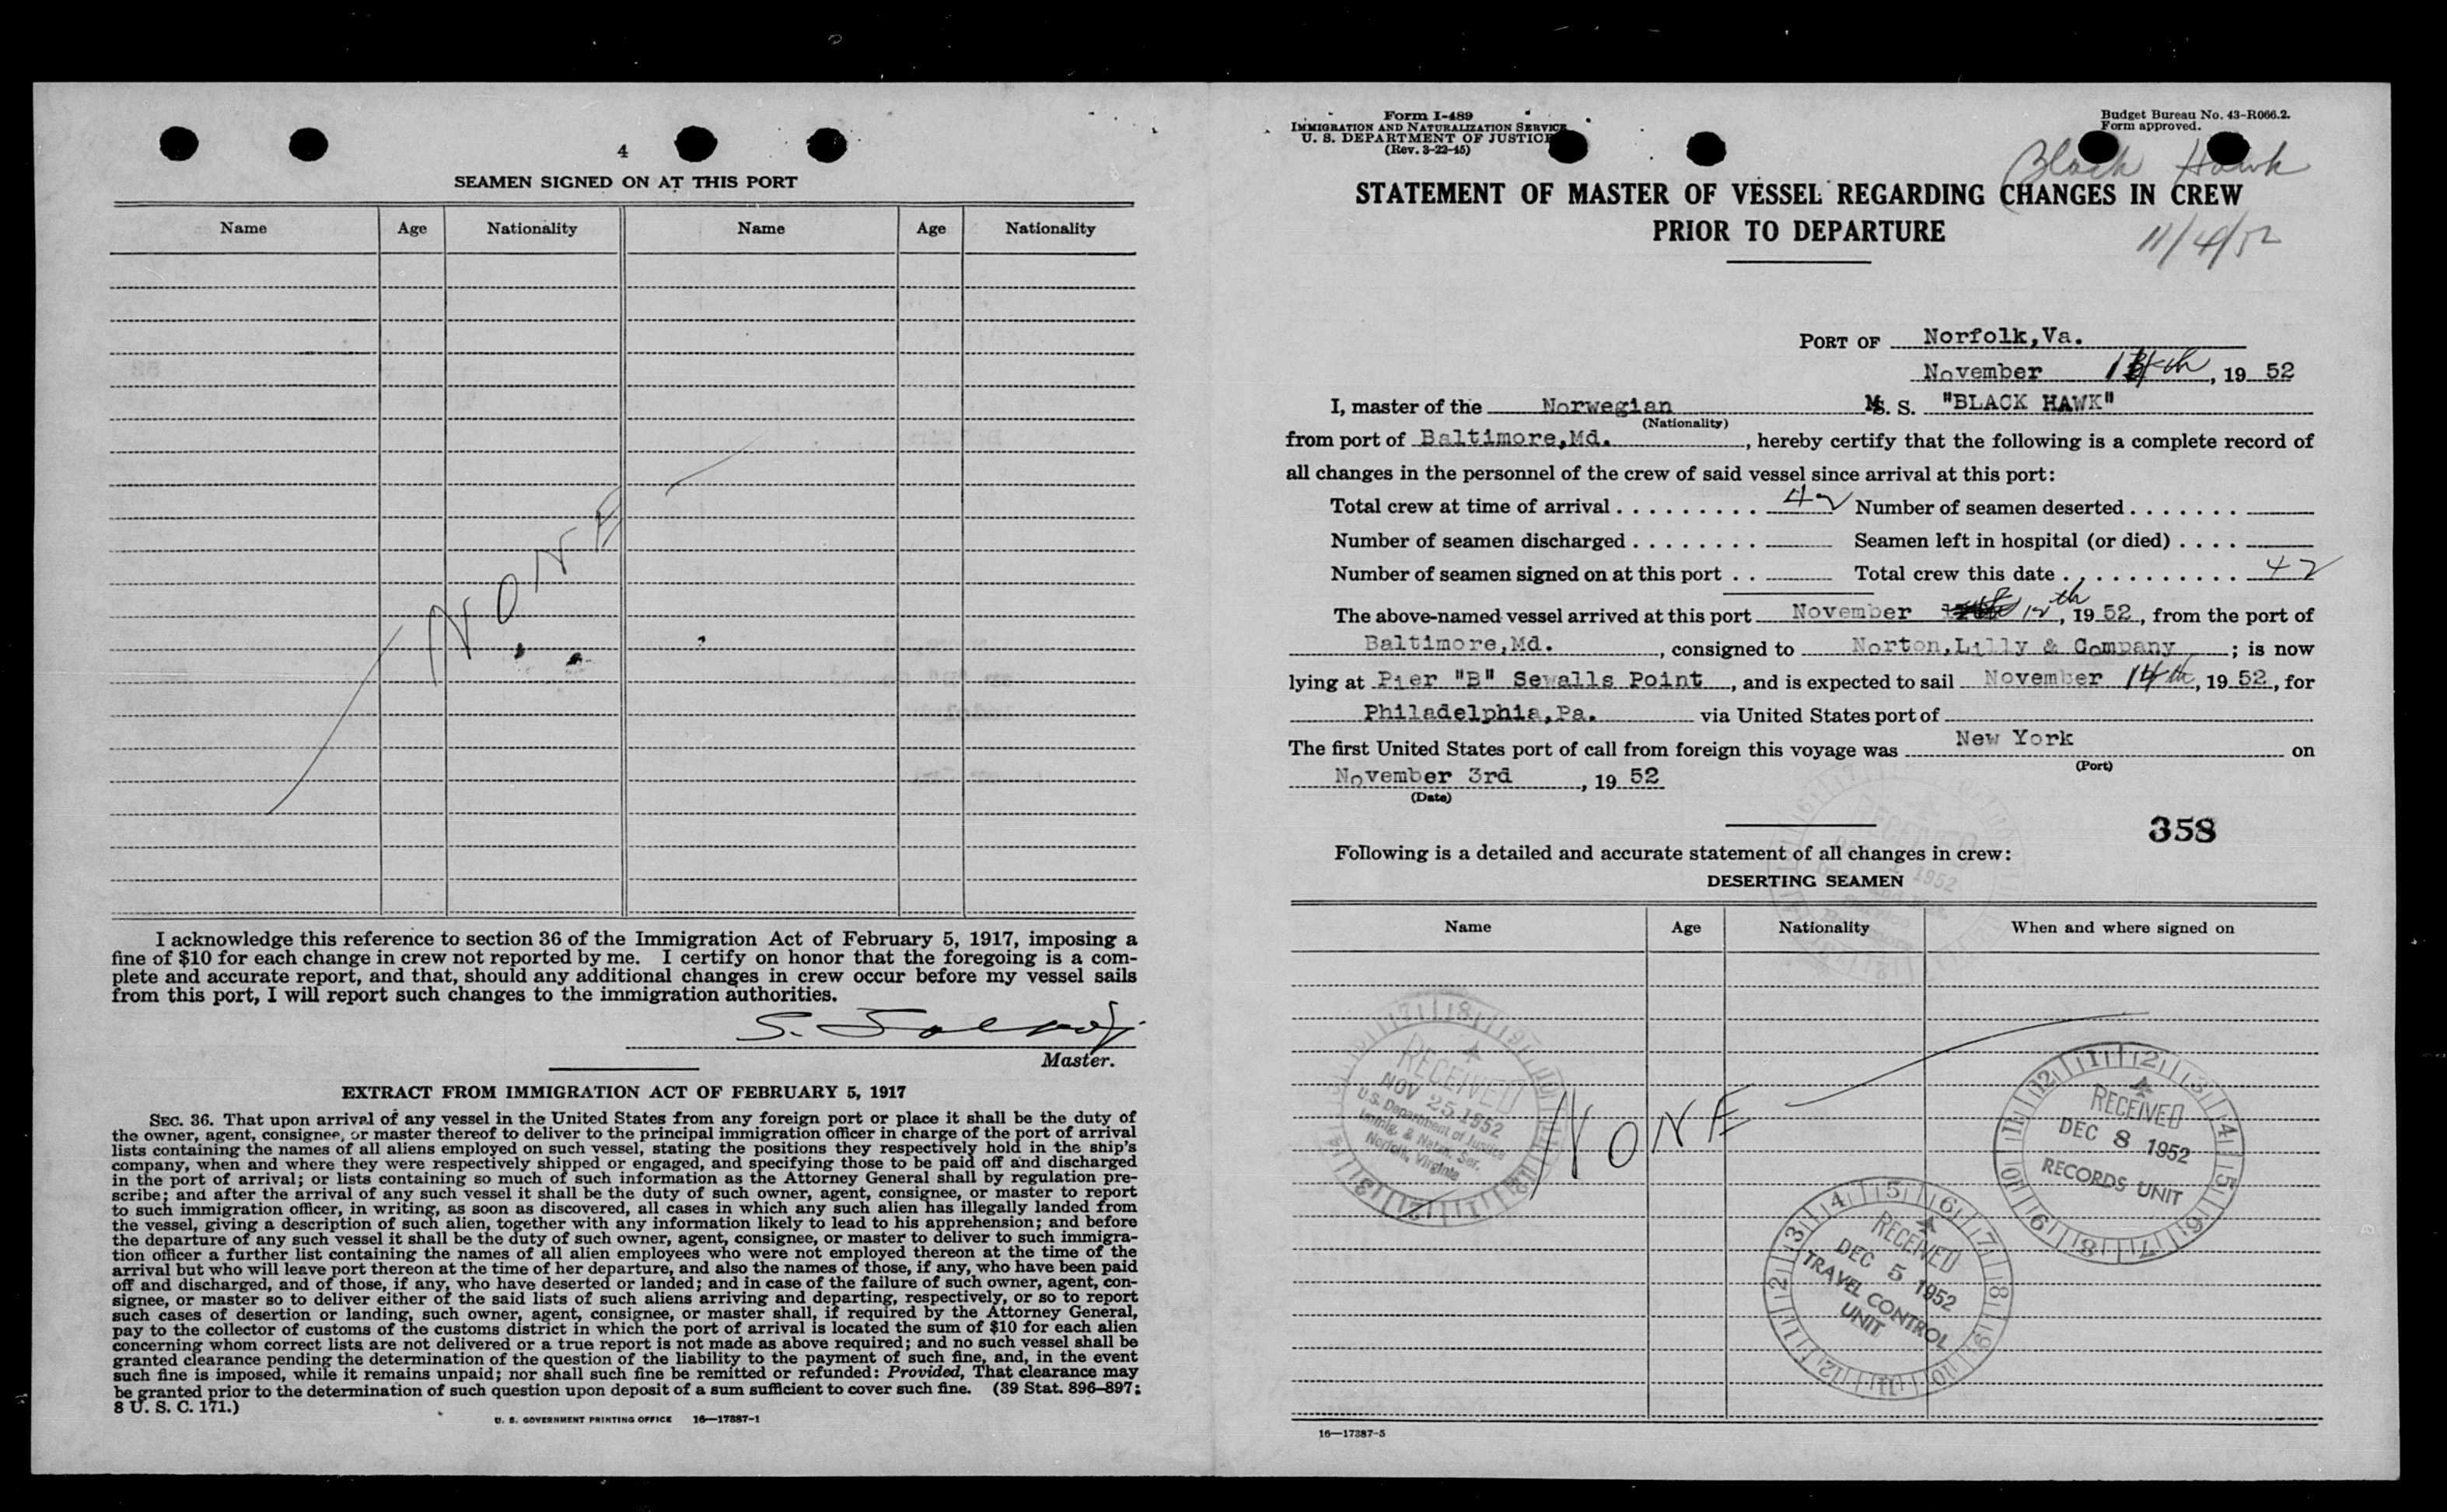 4
SEAMEN SIGNED ON AT THIS PORT
Name Age Nationality Name Age Nationality
NONE
I acknowledge this reference to section 36 of the Immigration Act of February 5, 1917, imposing a
fine of $10 for each change in crew not reported by me. I certify on honor that the foregoing is a com-
plete and accurate report, and that, should any additional changes in crew occur before my vessel sails
from this port, I will report such changes to the immigration authorities.
S.
Master.
EXTRACT FROM IMMIGRATION ACT OF FEBRUARY 5, 1917
SEC. 36. That upon arrival of any vessel in the United States from any foreign port or place it shall be the duty of
the owner, agent, consignee, or master thereof to deliver to the principal immigration officer in charge of the port of arrival
lists containing the names of all aliens employed on such vessel, stating the positions they respectively hold in the ship's
company, when and where they were respectively shipped or engaged, and specifying those to be paid off and discharged
in the port of arrival; or lists containing so much of such information as the Attorney General shall by regulation pre-
scribe; and after the arrival of any such vessel it shall be the duty of such owner, agent, consignee, or master to report
to such immigration officer, in writing, as soon as discovered, all cases in which any such alien has illegally landed from
the vessel, giving a description of such alien, together with any information likely to lead to his apprehension; and before
the departure of any such vessel it shall be the duty of such owner, agent, consignee, or master to deliver to such immigra-
tion officer a further list containing the names of all alien employees who were not employed thereon at the time of the
arrival but who will leave port thereon at the time of her departure, and also the names of those, if any, who have been paid
off and discharged, and of those, if any, who have deserted or landed; and in case of the failure of such owner, agent, con-
signee, or master so to deliver either of the said lists of such aliens arriving and departing, respectively, or so to report
such cases of desertion or landing, such owner, agent, consignee, or master shall, if required by the Attorney General,
pay to the collector of customs of the customs district in which the port of arrival is located the sum of $10 for each alien
concerning whom correct lists are not delivered or a true report is not made as above required; and no such vessel shall be
granted clearance pending the determination of the question of the liability to the payment of such fine, and, in the event
such fine is imposed, while it remains unpaid; nor shall such fine be remitted or refunded: Provided, That clearance may
be granted prior to the determination of such question upon deposit of a sum sufficient to cover such fine. (39 Stat. 896–897;
8 U. S. C. 171.)
U. S. GOVERNMENT PRINTING OFFICE 16—17387-1
Form I-489
IMMIGRATION AND NATURALIZATION SERVICE
U. S. DEPARTMENT OF JUSTICE
(Rev. 3-22-45)
Budget Bureau No. 43-R066.2.
Form approved.
Black Hawk
STATEMENT OF MASTER OF VESSEL REGARDING CHANGES IN CREW
PRIOR TO DEPARTURE
11/4/52
PORT OF Norfolk,Va.
November 14th, 19 52
I, master of the Norwegian M. S. "BLACK HAWK"
(Nationality)
from port of Baltimore,Md., hereby certify that the following is a complete record of
all changes in the personnel of the crew of said vessel since arrival at this port:
Total crew at time of arrival . . . . . . . . . 42 Number of seamen deserted . . . . . . .
Number of seamen discharged . . . . . . . . Seamen left in hospital (or died) . . . .
Number of seamen signed on at this port . . Total crew this date . . . . . . . . . . . 42
The above-named vessel arrived at this port November 12th, 19 52, from the port of
Baltimore,Md., consigned to Norton,Lilly & Company ; is now
lying at Pier "B" Sewalls Point, and is expected to sail November 14th, 19 52, for
Philadelphia,Pa. via United States port of
The first United States port of call from foreign this voyage was New York on
(Port)
November 3rd, 19 52
(Date)
358
Following is a detailed and accurate statement of all changes in crew:
DESERTING SEAMEN
Name Age Nationality When and where signed on
RECEIVED
NOV 25 1952
U.S. Department of Justice
Immig. & Natzn. Ser.
Norfolk, Virginia
NONE
RECEIVED
DEC 8 1952
RECORDS UNIT
RECEIVED
DEC 5 1952
TRAVEL CONTROL
UNIT
16—17387-5